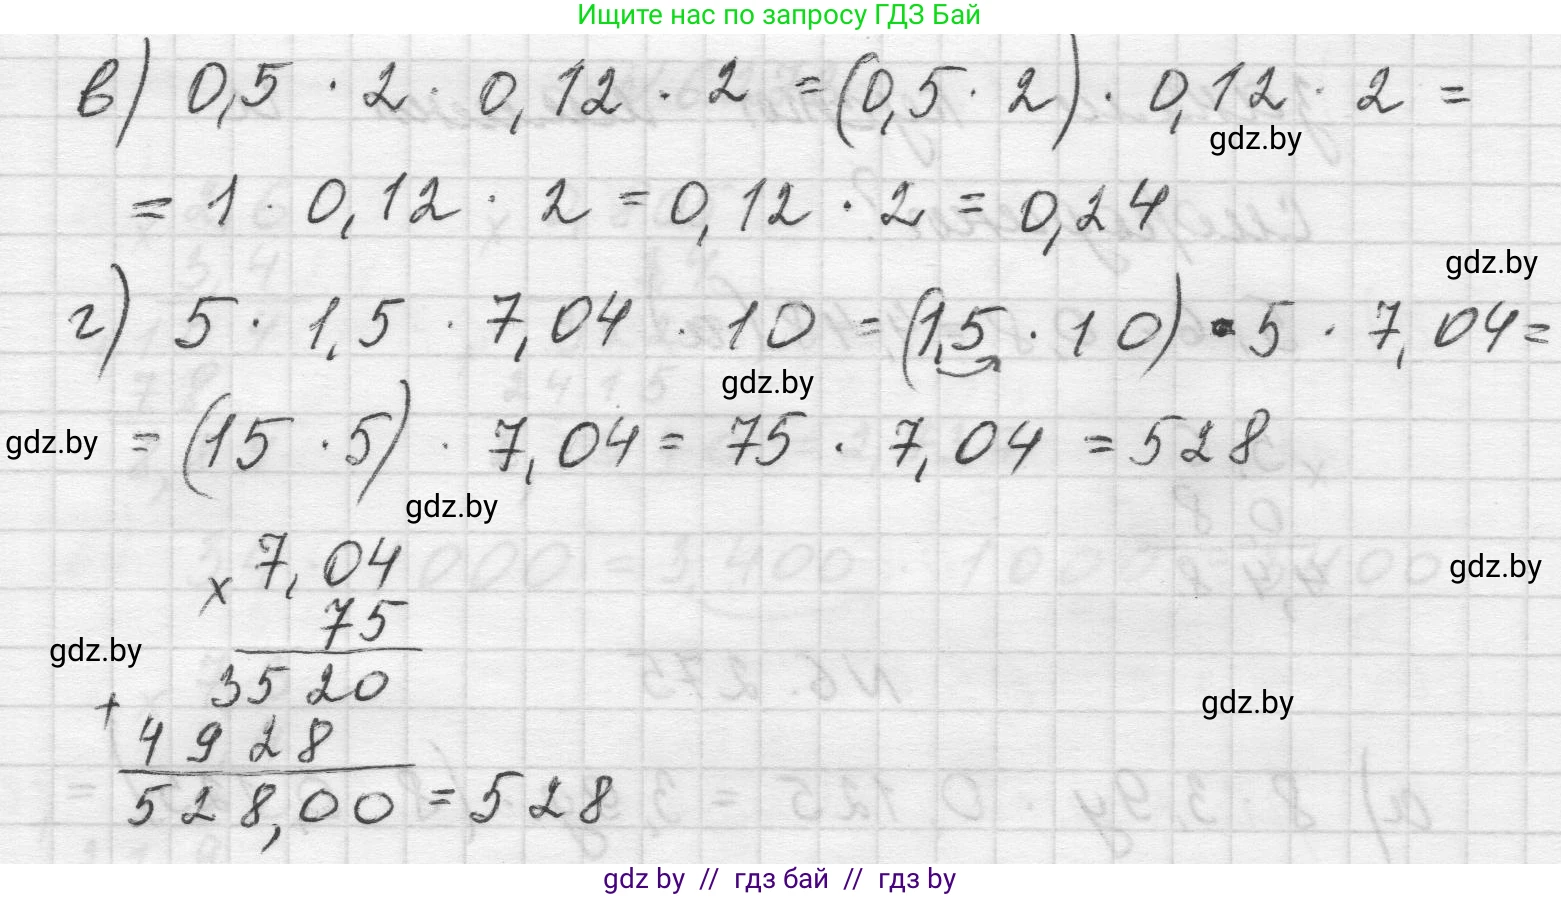 Ищите нас по запросу ГДЗ Бай
в) 0,5 · 2 · 0,12 · 2 = (0,5 · 2) · 0,12 · 2 =
gdz.by
= 1 · 0,12 · 2 = 0,12 · 2 = 0,24
gdz.by
г) 5 · 1,5 · 7,04 · 10 = (1,5 · 10) · 5 · 7,04 =
gdz.by
gdz.by
= (15 · 5) · 7,04 = 75 · 7,04 = 528
gdz.by
x 7,04
gdz.by
75
gdz.by
3520
gdz.by
+
4928
528,00 = 528
gdz by // гдз бай // гдз by